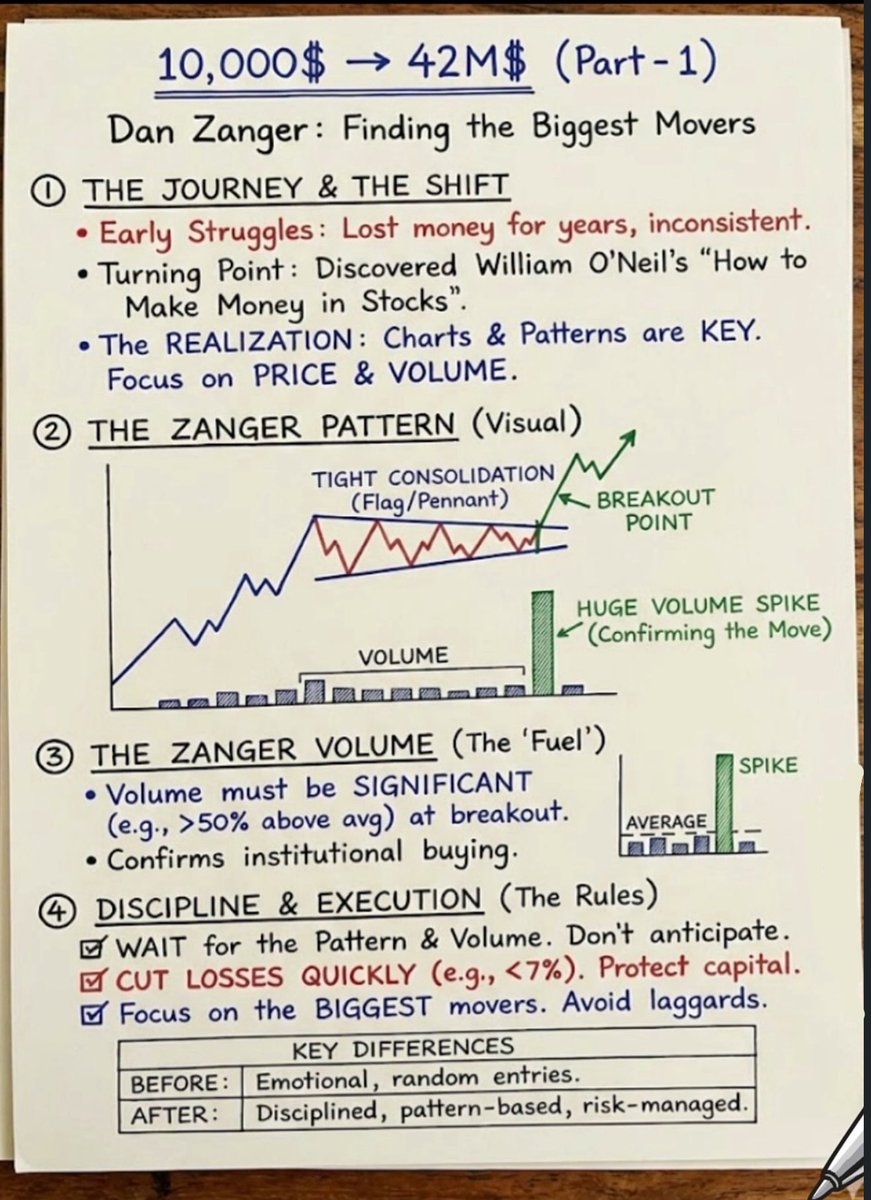 10,000$ → 42M$ (Part-1)
Dan Zanger: Finding the Biggest Movers
① THE JOURNEY & THE SHIFT
• Early Struggles: Lost money for years, inconsistent.
• Turning Point: Discovered William O'Neil's "How to
Make Money in Stocks".
• The REALIZATION: Charts & Patterns are KEY.
Focus on PRICE & VOLUME.
② THE ZANGER PATTERN (Visual)
TIGHT CONSOLIDATION
(Flag/Pennant)
BREAKOUT
POINT
HUGE VOLUME SPIKE
(Confirming the Move)
VOLUME
③ THE ZANGER VOLUME (The 'Fuel')
• Volume must be SIGNIFICANT
(e.g., >50% above avg) at breakout.
• Confirms institutional buying.
SPIKE
AVERAGE
④ DISCIPLINE & EXECUTION (The Rules)
☑ WAIT for the Pattern & Volume. Don't anticipate.
☑ CUT LOSSES QUICKLY (e.g., <7%). Protect capital.
☑ Focus on the BIGGEST movers. Avoid laggards.
KEY DIFFERENCES
BEFORE: Emotional, random entries.
AFTER: Disciplined, pattern-based, risk-managed.